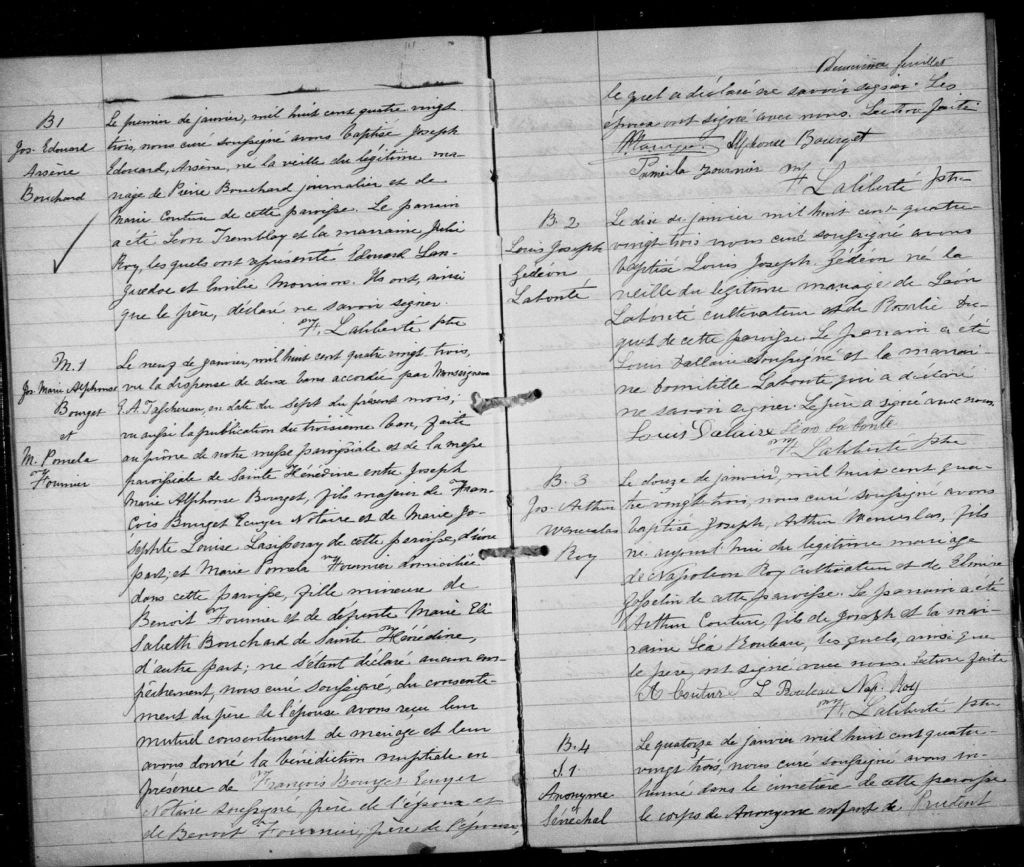 B1
Jos. Edouard
Arsène
Bouchard
Le premier de janvier, mil huit cent quatre vingt
trois, nous curé soussigné avons baptisé Joseph
Edouard, Arsène, né la veille du légitime ma-
riage de Pierre Bouchard journalier et de
Marie Couture de cette paroisse. Le parrain
a été Léon Tremblay et la marraine Julie
Roy, lesquels ont représenté Edouard Lan-
guedoc et Emilie Morrison. Ils ont, ainsi
que le père, déclaré ne savoir signer.
Laliberté Ptre
M. 1
Jos. Marie Alphonse
Bourget
et
M. Pomela
Fournier
Le neuf de janvier, mil huit cent quatre vingt trois,
vu la dispense de deux bans accordée par Monseigneur
E. A. Taschereau, en date du sept du présent mois;
vu aussi la publication du troisième ban, faite
au prône de notre messe paroissiale et de la messe
paroissiale de Sainte Hénédine entre Joseph
Marie Alphonse Bourget, fils majeur de Fran-
çois Bourget Ecuyer Notaire et de Marie Jo-
sephte Louise Lasisseray de cette paroisse, d'une
part; et Marie Pomela Fournier domiciliée
dans cette paroisse, fille mineure de
Benoit Fournier et de défunte Marie Eli
Sabeth Bouchard de Sainte Hénédine,
d'autre part; ne s'étant déclaré aucun em-
pêchement, nous curé soussigné, du consenti-
ment du père de l'épouse avons reçu leur
mutuel consentement de mariage et leur
avons donné la bénédiction nuptiale en
présence de François Bourget Ecuyer
Notaire soussigné père de l'époux et
de Benoit Fournier, père de l'épouse,
Deuxième feuillet
lequel a déclaré ne savoir signer. Les
époux ont signé avec nous. Lecture faite
Alphonse Bourget
Pamela Fournier
Laliberté Ptre
B. 2
Louis Joseph
Gédéon
Labonté
Le dix de janvier mil huit cent quatre-
vingt trois nous curé soussigné avons
baptisé Louis Joseph Gédéon né la
veille du légitime mariage de Léon
Labonté cultivateur et de Rosalie Du-
quet de cette paroisse. Le parrain a été
Louis Dallaire soussigné et la marrai-
ne Domitille Labonté qui a déclaré
ne savoir signer. Le père a signé avec nous
Louis Dalaire Léon Labonté
Laliberté Ptre
B. 3
Jos. Arthur
Wenceslas
Roy
Le douze de janvier, mil huit cent qua-
tre vingt trois, nous curé soussigné avons
baptisé Joseph, Arthur Wenceslas, fils
né aujourd'hui du légitime mariage
de Napoléon Roy cultivateur et de Elmire
Gosselin de cette paroisse. Le parrain a été
Arthur Couture, fils de Joseph et la mar-
raine Léa Rouleau, lesquels, ainsi que
le père, ont signé avec nous. Lecture faite
A Couture L Rouleau Nap. Roy
Laliberté Ptre
B. 4
S. 1
Anonyme
Sénéchal
Le quatorze de janvier mil huit cent quatre-
vingt trois, nous curé soussigné avons in-
humé dans le cimetière de cette paroisse
le corps de Anonyme enfant de Prudent